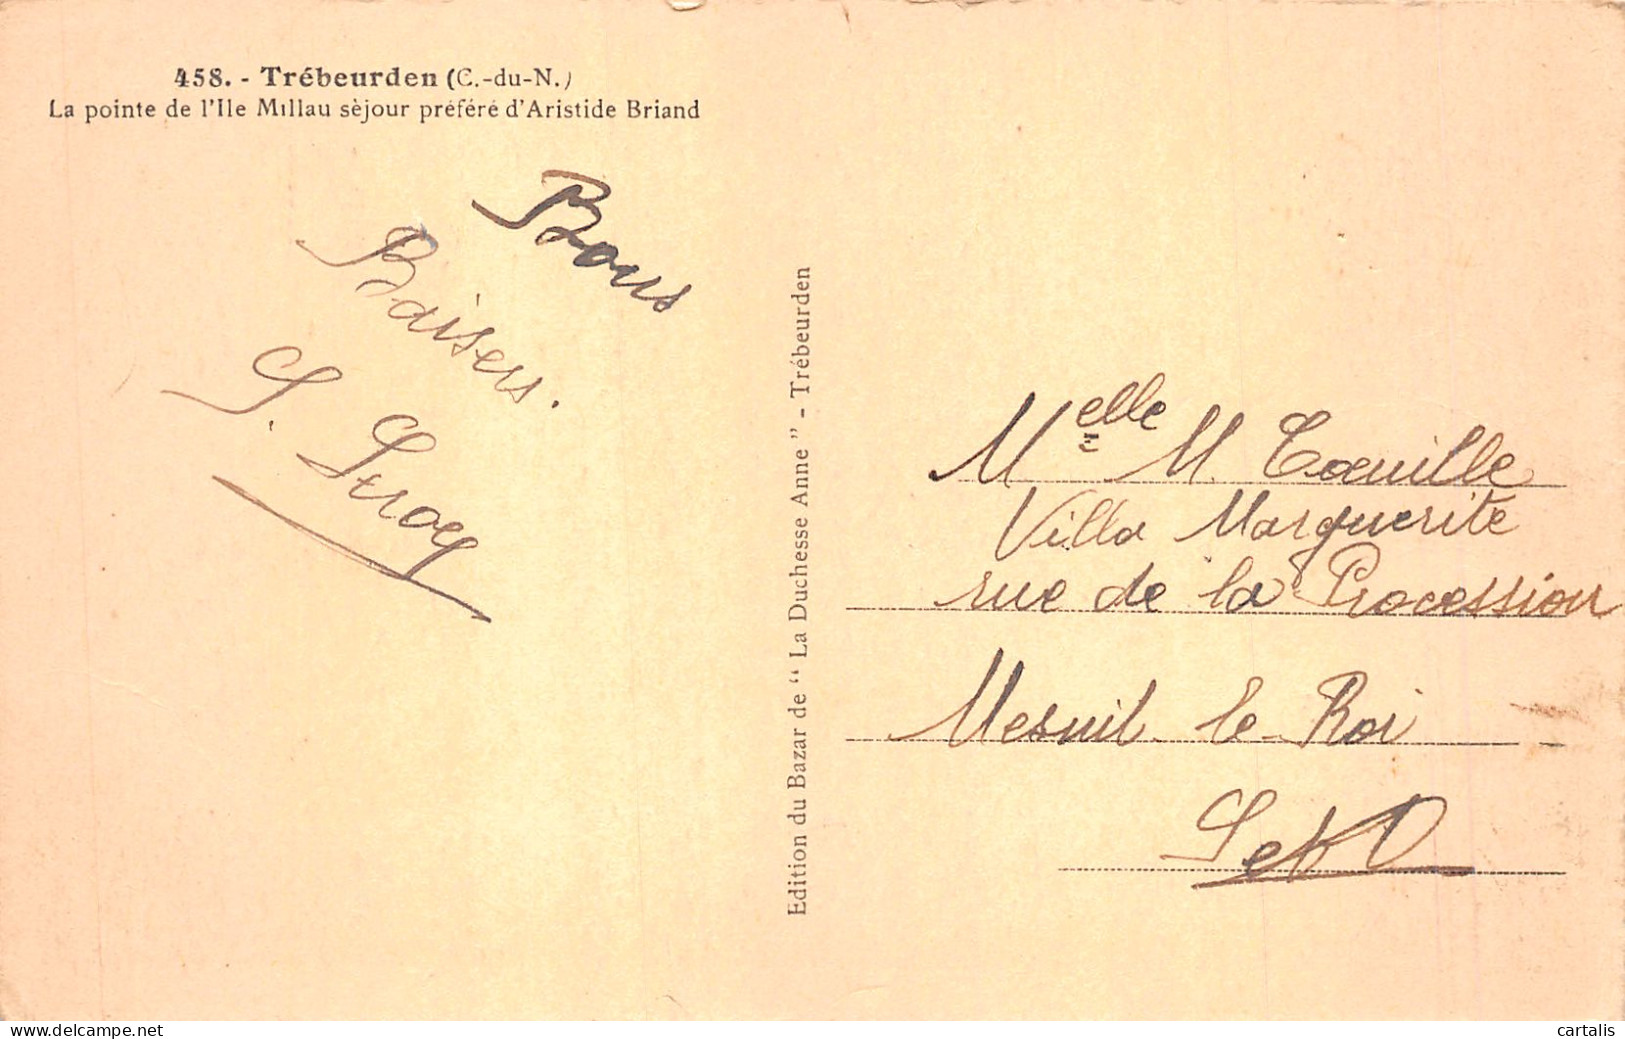 458. - Trébeurden (C.-du-N.)
La pointe de l'Ile Millau sèjour préféré d'Aristide Briand
Bons
Baisers.
S. Leroy
Edition du Bazar de “ La Duchesse Anne ” - Trébeurden
Melle M.
Villa Marguerite
rue de la Procession
Mesnil le Roi
S et O
delcampe.net
cartalis